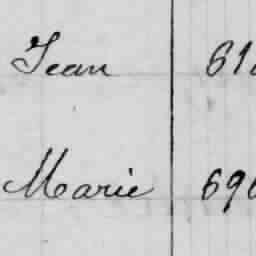 Jean 61
Marie 69